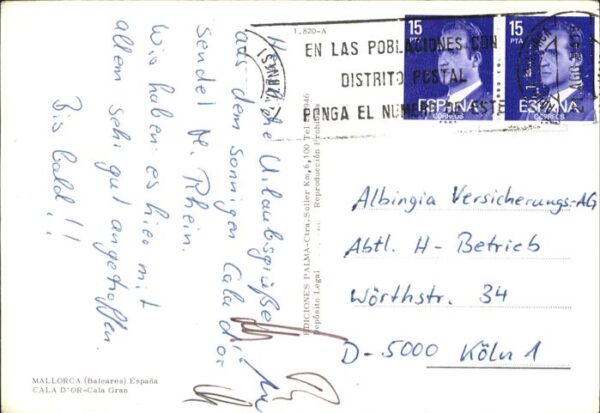 1.820-A
Herzliche Urlaubsgrüße
aus dem sonnigen Cala d'or
sendet H. Rhein.
Wir haben es hier mit
allem sehr gut angetroffen.
Bis bald!!
EDICIONES PALMA-Ctra. Soller Km, 6,100 Tel
Depósito Legal
Reproducción Prohibida
MALLORCA (Baleares) España
CALA D'OR-Cala Gran
EN LAS POBLACIONES CON
DISTRITO POSTAL
PONGA EL NUMERO DE ESTE
15
PTA
ESPAÑA
CORREOS
15
PTA
ESPAÑA
CORREOS
Albingia Versicherungs-AG
Abtl. H-Betrieb
Wörthstr. 34
D-5000 Köln 1